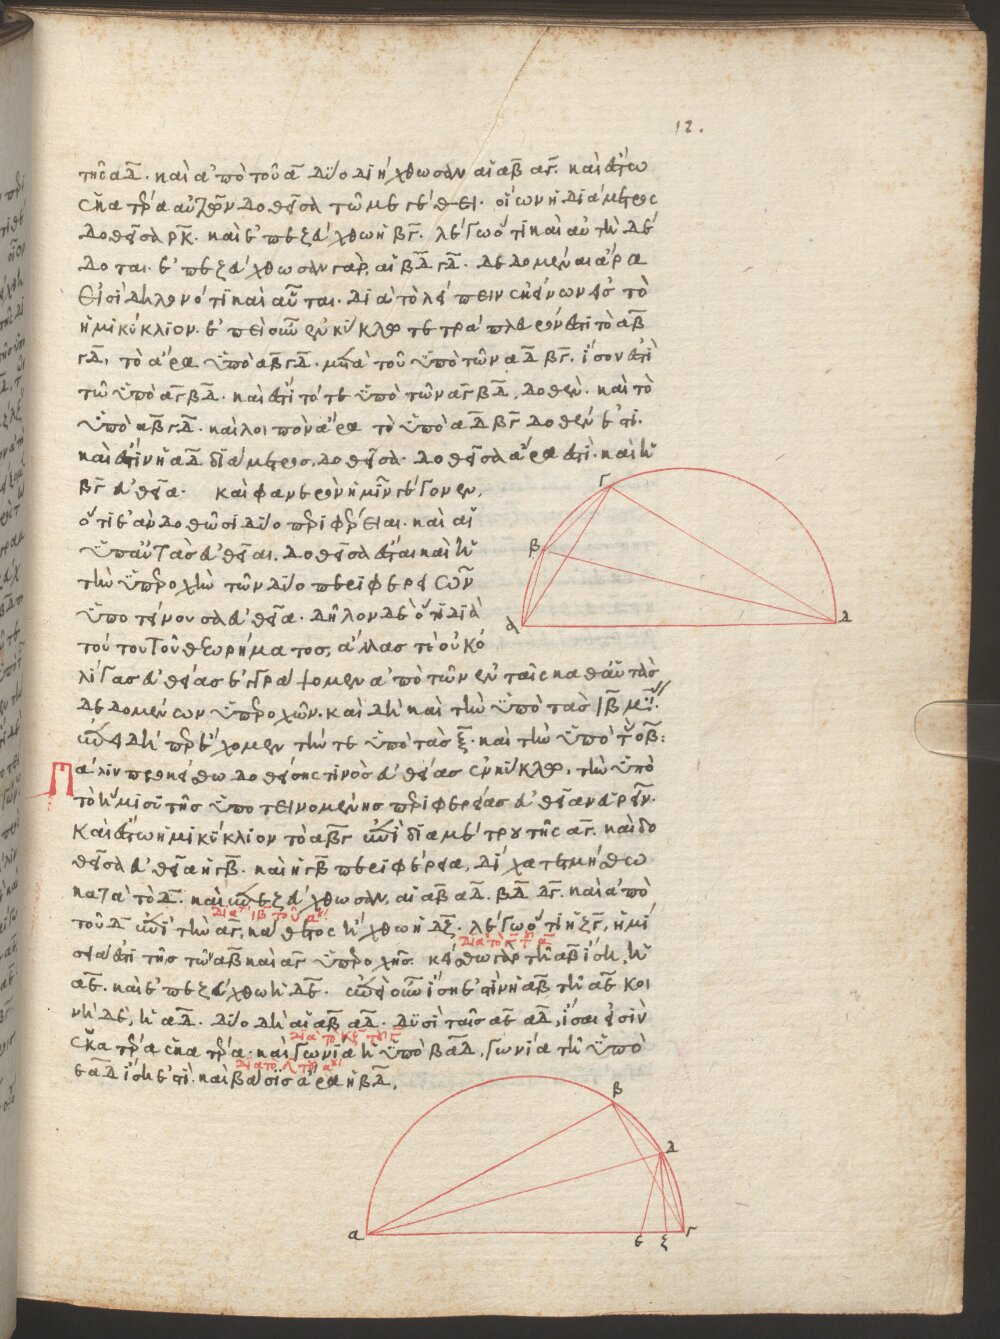 12.
τῆς ΑΔ. καὶ ἀπὸ τοῦ Α δύο διήχθωσαν αἱ ΑΒ ΑΓ. καὶ ἔστω
ἑκατέρα αὐτῶν δοθεῖσα τῷ μεγέθει. οἵων ἡ διάμετρος
δοθεῖσα ρκ. καὶ ἐπεζεύχθω ἡ ΒΓ. λέγω ὅτι καὶ αὐτὴ δέ
δοται. ἐπεζεύχθωσαν γὰρ, αἱ ΒΔ ΓΔ. δεδομέναι ἄρα
εἰσὶ δηλονότι καὶ αὗται. διὰ τὸ λείπειν ἐκείνων εἰς τὸ
ἡμικύκλιον. ἐπεὶ οὖν ἐν κύκλῳ τετράπλευρόν ἐστι τὸ ΑΒ
ΓΔ, τὸ ἄρα ὑπὸ ΑΒ ΓΔ. μετὰ τοῦ ὑπὸ τῶν ΑΔ ΒΓ. ἴσον ἐστὶ
τῷ ὑπὸ ΑΓ ΒΔ. καὶ ἔστι τό τε ὑπὸ τῶν ΑΓ ΒΔ, δοθέν. καὶ τὸ
ὑπὸ ΑΒ ΓΔ. καὶ λοιπὸν ἄρα τὸ ὑπὸ ΑΔ ΒΓ δοθέν ἐστι.
καὶ ἔστιν ἡ ΑΔ διάμετρος, δοθεῖσα. δοθεῖσα ἄρα ἐστὶ. καὶ ἡ
ΒΓ εὐθεῖα. καὶ φανερὸν ἡμῖν γέγονεν,
ὅτι ἐὰν δοθῶσι δύο περιφέρειαι. καὶ αἱ
ὑπ' αὐτὰς εὐθεῖαι. δοθεῖσα ἔσται καὶ ἡ
τὴν ὑπεροχὴν τῶν δύο περιφερειῶν
ὑποτείνουσα εὐθεῖα. δῆλον δὲ ὅτι διὰ
τούτου τοῦ θεωρήματος, ἄλλας τε οὐκ ὀ
λίγας εὐθείας ἐγγράψομεν ἀπὸ τῶν ἐν ταῖς καθ' αὑτὰς
δεδομένων ὑπεροχῶν. καὶ δὴ καὶ τὴν ὑπὸ τὰς ΙΒ μοί.
ἐπειδήπερ ἔχομεν τήν τε ὑπὸ τὰς ξ. καὶ τὴν ὑπὸ τὰς οβ:
Πάλιν προκείσθω δοθείσης τινὸς εὐθείας ἐν κύκλῳ, τὴν ὑπὸ
τὸ ἥμισυ τῆς ὑποτεινομένης περιφερείας εὐθεῖαν εὑρεῖν.
Καὶ ἔστω ἡμικύκλιον τὸ ΑΒΓ ἐπὶ διαμέτρου τῆς ΑΓ. καὶ δο
θεῖσα εὐθεῖα ἡ ΓΒ. καὶ ἡ ΓΒ περιφέρεια, δίχα τετμήσθω
κατὰ τὸ Δ. καὶ ἐπεζεύχθωσαν, αἱ ΑΒ ΑΔ. ΒΔ ΔΓ. καὶ ἀπὸ
διὰ ιβ τοῦ αου
τοῦ Δ ἐπὶ τὴν ΑΓ, κάθετος ἤχθω ἡ ΔΖ. λέγω ὅτι ἡ ΖΓ, ἡμί
διὰ τὸ γ τοῦ α
σειά ἐστι τῆς τῶν ΑΒ καὶ ΑΓ ὑπεροχῆς. κείσθω γὰρ τῇ ΑΒ ἴση, ἡ
ΑΕ. καὶ ἐπεζεύχθω ἡ ΔΕ. ἐπεὶ οὖν ἴση ἐστὶν ἡ ΑΒ τῇ ΑΕ κοι
νὴ δὲ, ἡ ΑΔ. δύο δὴ αἱ ΑΒ ΑΔ. δυσὶ ταῖς ΑΕ ΑΔ, ἴσαι εἰσὶν
διὰ τὸ κζ τοῦ γ
ἑκατέρα ἑκατέρα. καὶ γωνία ἡ ὑπὸ ΒΑΔ, γωνίᾳ τῇ ὑπὸ
διὰ τὸ δ τοῦ α
ΕΑΔ ἴση ἐστὶ. καὶ βάσις ἄρα ἡ ΒΔ,
α β γ Δ
α β Δ ε ζ γ